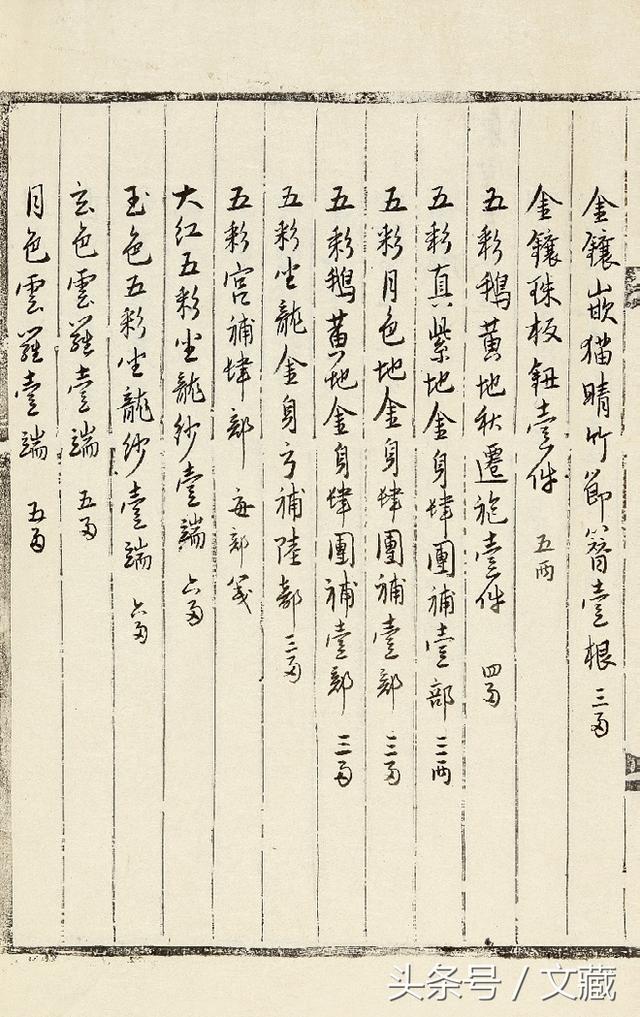 金鑲嵌猫睛竹節簪壹根 三两
金鑲珠板鈕壹件 五两
五彩鵝黄地秋遷袍壹件 四两
五彩真紫地金身肆團補壹部 三两
五彩月色地金身肆團補壹部 三两
五彩鵝黄地金身肆團補壹部 三两
五彩坐龍金身方補陸部 三两
五彩宮補肆部 每部
大红五彩坐龍纱壹端 六两
玉色五彩坐龍纱壹端 六两
玄色雲羅壹端 五两
月色雲羅壹端 五两
头条号 / 文藏